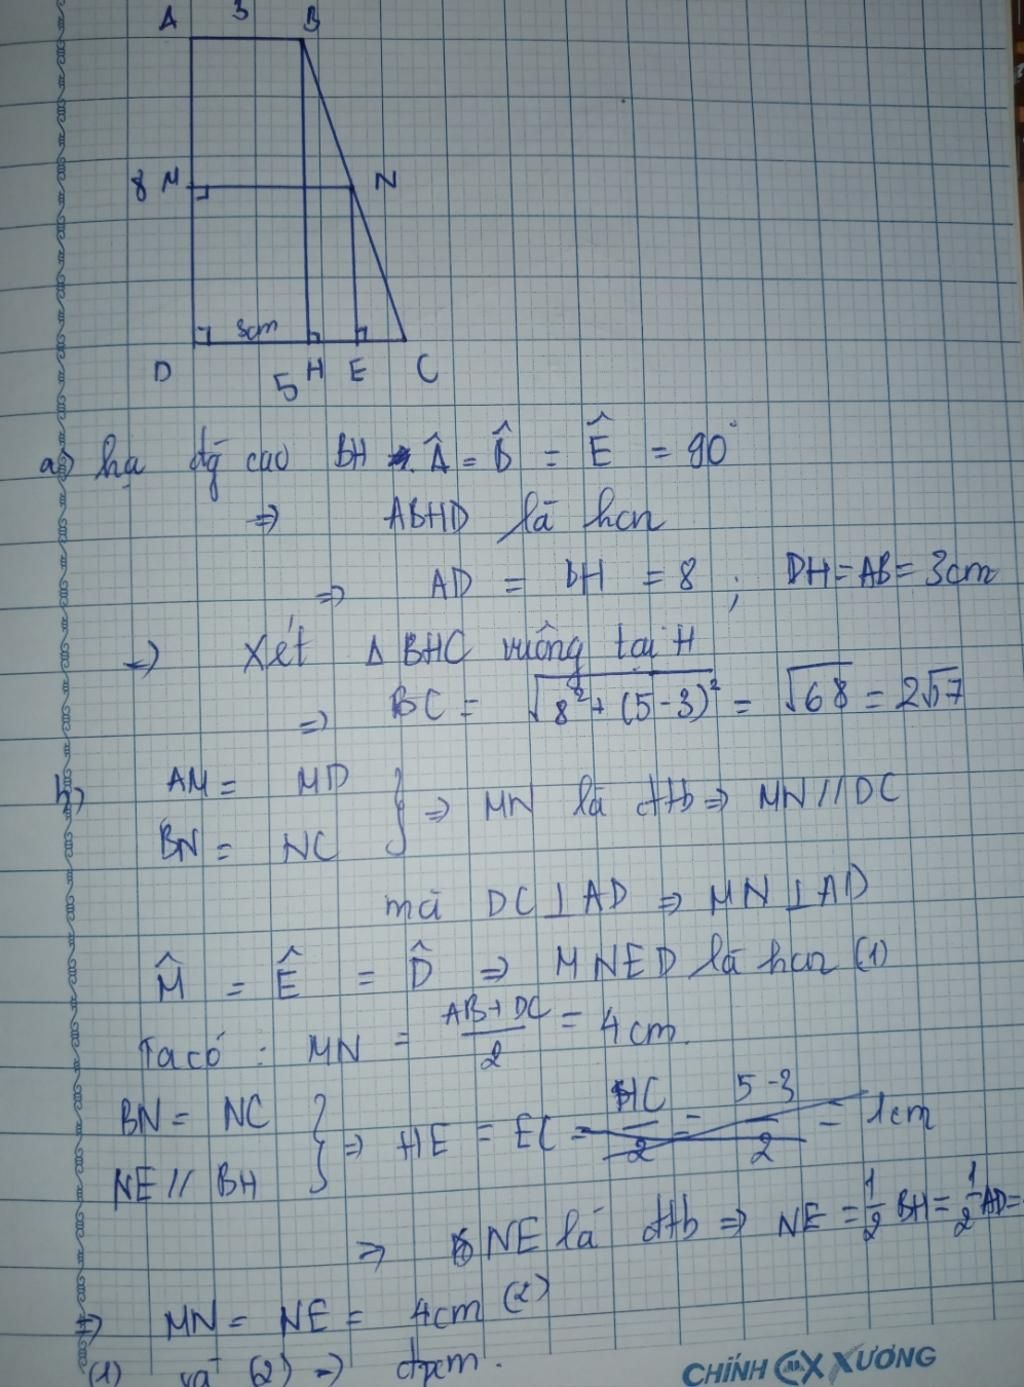 A 3 B
8 M N
3cm
D 5 H E C
a) hạ đg cao BH . Â = D̂ = Ê = 90°
=> ABHD là hcn
=> AD = BH = 8 ; DH = AB = 3cm
=> Xét Δ BHC vuông tại H
=> BC = √(8² + (5-3)²) = √68 = 2√17
b) AM = MD
BN = NC } => MN là đtb => MN // DC
mà DC ⊥ AD => MN ⊥ AD
M̂ = Ê = D̂ => MNED là hcn (1)
Ta có : MN = (AB + DC)/2 = 4cm.
BN = NC
NE // BH } => HE = EC = HC/2 = (5-3)/2 = 1cm
=> NE là đtb => NE = 1/2 BH = 1/2 AD =
=> MN = NE = 4cm (2)
(1) và (2) => đpcm.
CHÍNH XƯƠNG